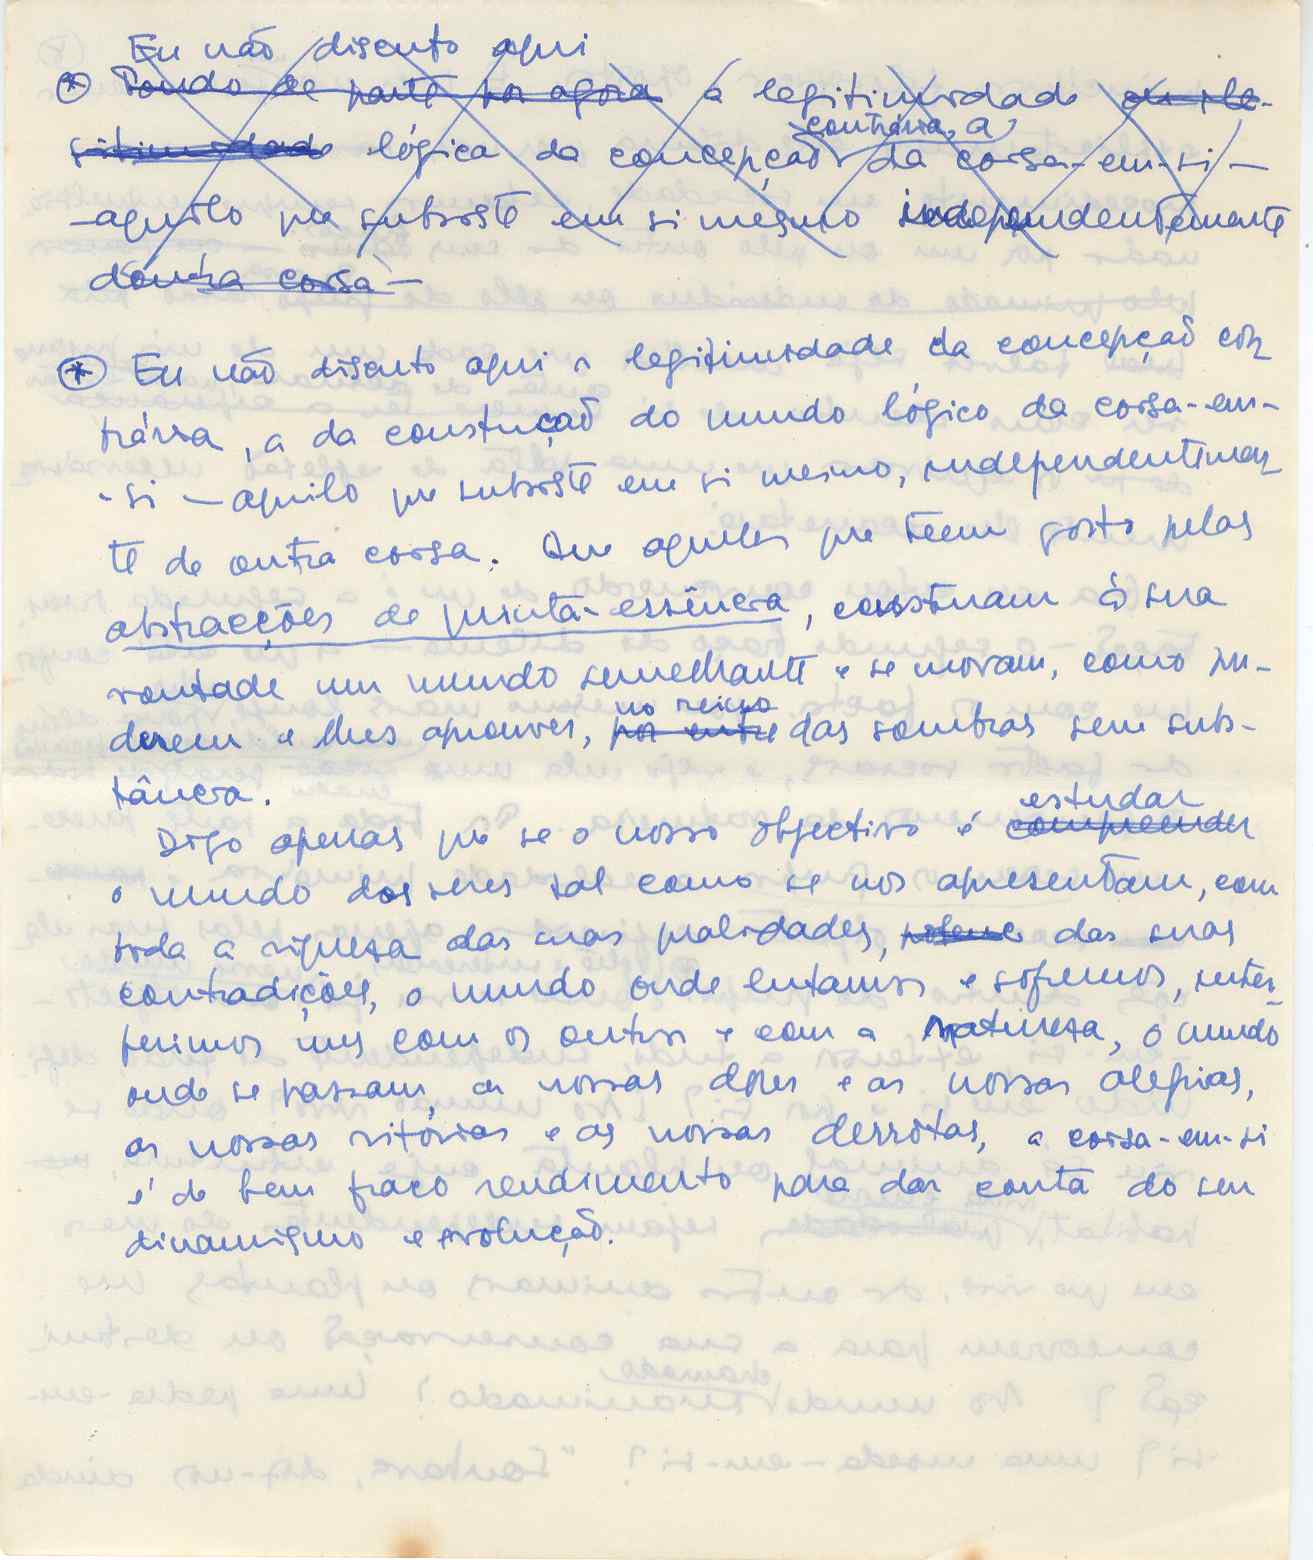 Eu não discuto aqui
* Pondo de parte por agora a legitimidade ou ile-
gitimidade lógica da concepção contrária, a da coisa-em-si —
— aquilo que subsiste em si mesmo independentemente
doutra coisa —
* Eu não discuto aqui a legitimidade da concepção con
trária, a da construção do mundo lógico da coisa-em-
-si — aquilo que subsiste em si mesmo, independentemen
te de outra coisa. Que aqueles que teem gosto pelas
abstracções de quinta-essência, construam à sua
vontade um mundo semelhante e se movam, como pu-
derem e lhes aprouver, por entre no reino das sombras sem subs-
tância.
Digo apenas que se o nosso objectivo é compreender estudar
o mundo dos seres tal como se nos apresentam, com
toda a riqueza das suas qualidades, das suas
contradições, o mundo onde lutamos e sofremos, inter-
ferimos uns com os outros e com a natureza, o mundo
onde se passam, as nossas dores e as nossas alegrias,
as nossas vitórias e as nossas derrotas, a coisa-em-si
é de bem fraco rendimento para dar conta do seu
dinamismo e evolução.